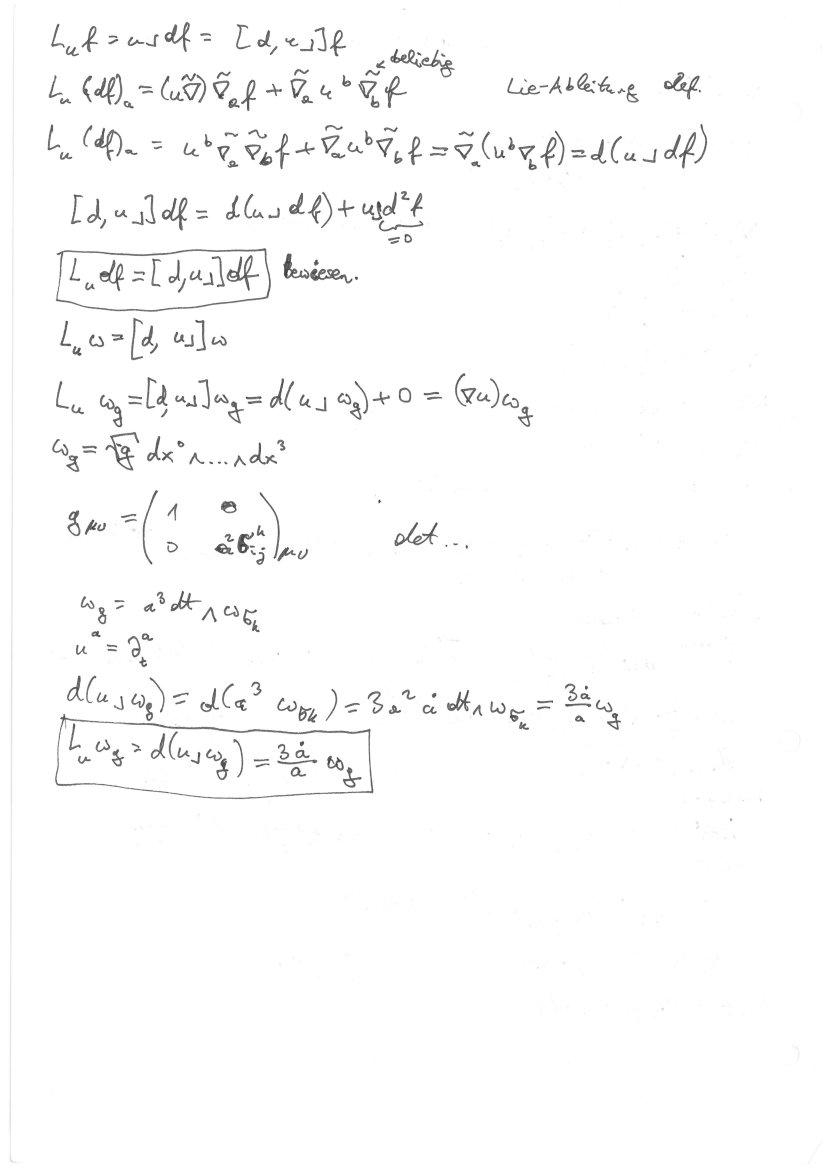 L_u f = u⌟df = [d, u⌟]f
↙ beliebig
L_u (df)_a = (u∇̃)∇̃_a f + ∇̃_a u^b ∇̃_b f    Lie-Ableitung def.
L_u (df)_a = u^b ∇̃_a ∇̃_b f + ∇̃_a u^b ∇̃_b f = ∇̃_a (u^b ∇_b f) = d(u⌟df)
[d, u⌟]df = d(u⌟df) + u⌟d²f
=0
L_u df = [d, u⌟]df bewiesen.
L_u ω = [d, u⌟]ω
L_u ω_g = [d, u⌟]ω_g = d(u⌟ω_g) + 0 = (∇u)ω_g
ω_g = √g dx⁰ ∧ ... ∧ dx³
g_μν = (1 0
0 a²σ^k_ij)_μν    det...
ω_g = a³ dt ∧ ω_σ_k
u^a = ∂_t^a
d(u⌟ω_g) = d(a³ ω_σk) = 3a² ȧ dt ∧ ω_σ_k = 3ȧ/a ω_g
L_u ω_g = d(u⌟ω_g) = 3ȧ/a ω_g